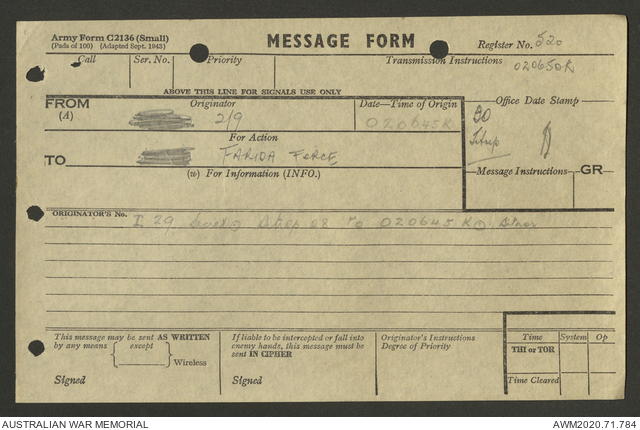 Army Form C2136 (Small)
(Pads of 100) (Adapted Sept. 1943)
MESSAGE FORM
Register No. 520
Call
Ser. No.
Priority
Transmission Instructions
020650K
ABOVE THIS LINE FOR SIGNALS USE ONLY
FROM
(A)
Originator
2/9
Date—Time of Origin
020645K
Office Date Stamp
For Action
TO
FARIDA FORCE
(w) For Information (INFO.)
Message Instructions
GR
ORIGINATOR'S No.
I 29 Sitrep 28 to 020645 K
This message may be sent AS WRITTEN
by any means
except
Wireless
Signed
If liable to be intercepted or fall into
enemy hands, this message must be
sent IN CIPHER
Signed
Originator's Instructions
Degree of Priority
Time
System
Op
THI or TOR
Time Cleared
AUSTRALIAN WAR MEMORIAL
AWM2020.71.784